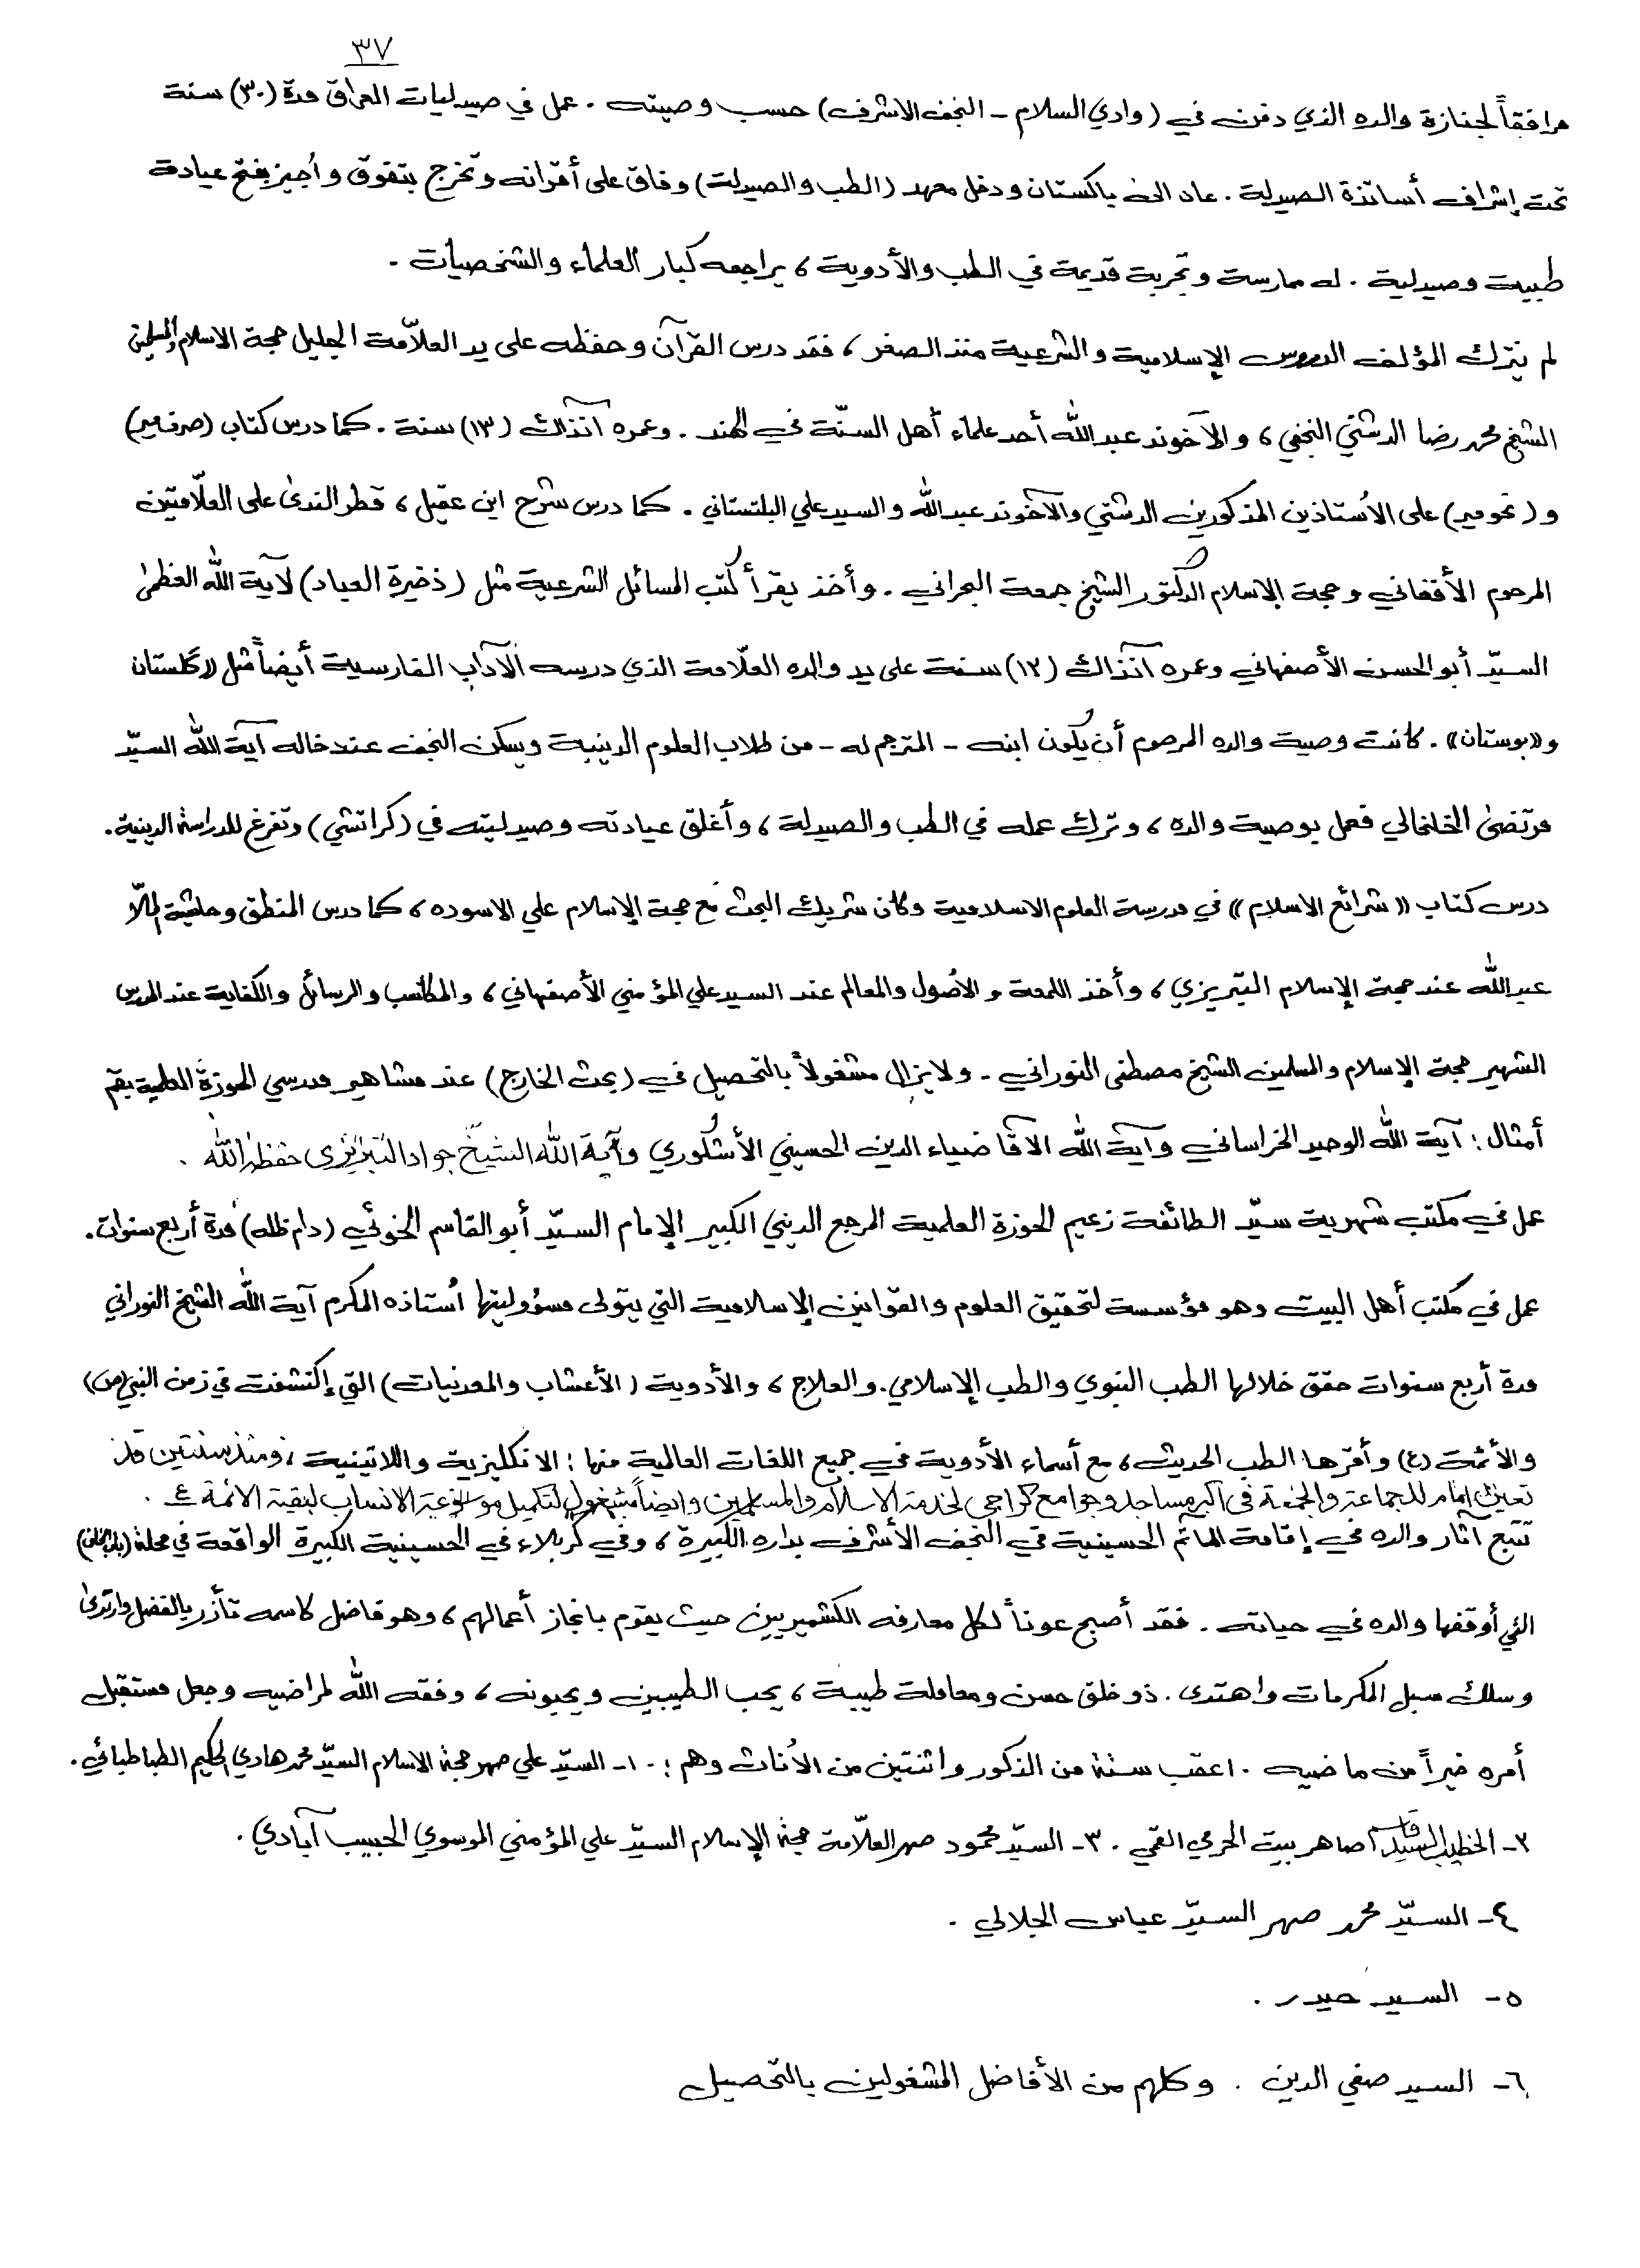 ٣٧
مرافقاً لجنازة والده الذي دفن في (وادي السلام - النجف الاشرف) حسب وصيته . عمل في صيدليات العراق مدة (٣٠) سنة
تحت إشراف أساتذة الصيدلية . عاد الى باكستان ودخل معهد (الطب والصيدلة) وفاق على أقرانه وتخرج بتفوق وأُجيز بفتح عيادة
طبية وصيدلية . له ممارسة وتجربة قديمة في الطب والأدوية ، يراجعه كبار العلماء والشخصيات .
لم يترك المؤلف الدروس الإسلامية والشرعية منذ الصغر ، فقد درس القرآن وحفظه على يد العلّامة الجليل حجة الاسلام والمسلمين
الشيخ محمد رضا الرشتي النجفي ، والآخوند عبد الله أحد علماء أهل السنّة في الهند . وعمره آنذاك (١٣) سنة . كما درس كتاب (صرف مير)
و (نحو مير) على الأستاذين المذكورين الرشتي والآخوند عبد الله والسيد علي البلتستاني . كما درس شرح ابن عقيل ، قطر الندى على العلّامتين
المرحوم الأفغاني وحجة الإسلام الدكتور الشيخ جمعة البحراني . وأخذ يقرأ كتب المسائل الشرعية مثل (ذخيرة العباد) لآية الله العظمى
السيّد أبو الحسن الأصفهاني وعمره آنذاك (١٢) سنة على يد والده العلّامة الذي درسه الآداب الفارسية أيضاً مثل «گلستان
و «بوستان» . كانت وصية والده المرحوم أن يكون ابنه - المترجم له - من طلاب العلوم الدينية ويسكن النجف عند خاله آية الله السيّد
مرتضى الخلخالي فعمل بوصية والده ، وترك عمله في الطب والصيدلة ، وأغلق عيادته وصيدليته في (كراتشي) وتفرغ للدراسة الدينية .
درس كتاب «شرائع الاسلام» في مدرسة العلوم الاسلامية وكان شريك البحث مع حجة الإسلام علي الاسوده ، كما درس المنطق وحاشية الملّا
عبد الله عند حجة الإسلام التبريزي ، وأخذ اللمعة والأصول والمعالم عند السيد علي المؤمني الأصفهاني ، والمكاسب والرسائل والكفاية عند المدرس
الشهير حجة الإسلام والمسلمين الشيخ مصطفى النوراني . ولا يزال مشغولاً بالتحصيل في (بحث الخارج) عند مشاهير مدرسي الحوزة العلمية بقم
أمثال : آية الله الوحيد الخراساني وآية الله الآقا ضياء الدين الحسيني الأشكوري وآية الله الشيخ جواد التبريزي حفظه الله .
عمل في مكتب شهرية سيّد الطائفة زعيم الحوزة العلمية المرجع الديني الكبير الإمام السيّد أبو القاسم الخوئي (دام ظله) مدة أربع سنوات .
عمل في مكتب أهل البيت وهو مؤسسة لتحقيق العلوم والقوانين الإسلامية التي يتولى مسؤوليتها أستاذه المكرم آية الله الشيخ النوراني
مدة أربع سنوات حقق خلالها الطب النبوي والطب الإسلامي . والعلاج ، والأدوية (الأعشاب والمعدنيات) التي إكتشفت في زمن النبي (ص)
والأئمة (ع) وأقرها الطب الحديث ، مع أسماء الأدوية في جميع اللغات العالمية منها : الانكليزية واللاتينية ، ومنذ سنتين قد
تعين إمام للجماعة والجمعة في اكبر مساجد وجوامع كراچي لخدمة الاسلام والمسلمين وايضاً مشغول لتكميل موسوعة الانساب لبقية الائمة ع .
تتبع اثار والده في إقامة المآتم الحسينية في النجف الأشرف بداره الكبيرة ، وفي كربلاء في الحسينية الكبيرة الواقعة في محلة
التي أوقفها والده في حياته . فقد أصبح عوناً لكل معارفه الكشميريين حيث يقوم بانجاز أعمالهم ، وهو فاضل كاسمه تأزر بالفضل وارتدى
وسلك سبل المكرمات واهتدى . ذو خلق حسن ومعاملة طيبة ، يحب الطيبين ويحبونه ، وفقه الله لمراضيه وجعل مستقبل
أمره خيراً من ماضيه . اعقب ستة من الذكور واثنتين من الأناث وهم : ١- السيّد علي صهر حجة الاسلام السيّد محمد هادي الحكيم الطباطبائي .
٢- الخطيب السيد اصاهر بيت الحرمي القمي . ٣- السيّد محمود صهر العلّامة حجة الإسلام السيّد علي المؤمني الموسوي الحبيب آبادي .
٤- السيّد محمد صهر السيّد عباس الجلالي .
٥- السيد حيدر .
٦- السيد صفي الدين . وكلهم من الأفاضل المشغولين بالتحصيل